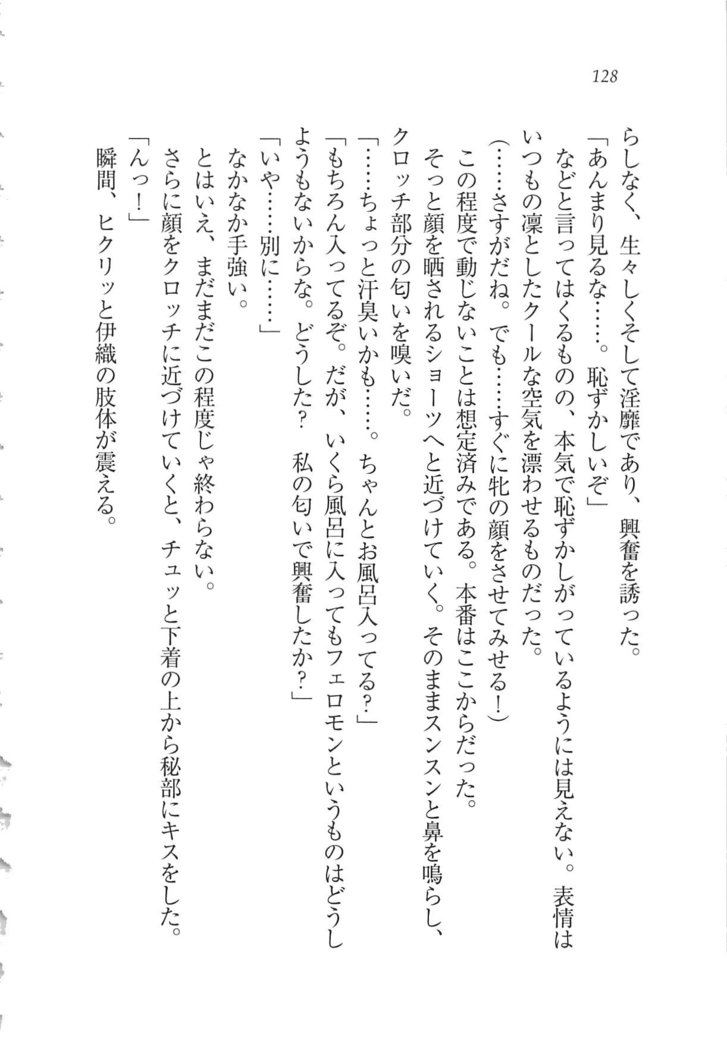 128
らしなく、生々しくそして淫靡であり、興奮を誘った。
「あんまり見るな……。恥ずかしいぞ」
などと言ってはくるものの、本気で恥ずかしがっているようには見えない。表情は
いつもの凛としたクールな空気を漂わせるものだった。
(……さすがだね。でも……すぐに牝の顔をさせてみせる！)
この程度で動じないことは想定済みである。本番はここからだった。
そっと顔を晒されるショーツへと近づけていく。そのままスンスンと鼻を鳴らし、
クロッチ部分の匂いを嗅いだ。
「……ちょっと汗臭いかも……。ちゃんとお風呂入ってる？」
「もちろん入ってるぞ。だが、いくら風呂に入ってもフェロモンというものはどうし
ようもないからな。どうした？　私の匂いで興奮したか？」
「いや……別に……」
なかなか手強い。
とはいえ、まだまだこの程度じゃ終わらない。
さらに顔をクロッチに近づけていくと、チュッと下着の上から秘部にキスをした。
「んっ！」
瞬間、ヒクリッと伊織の肢体が震える。